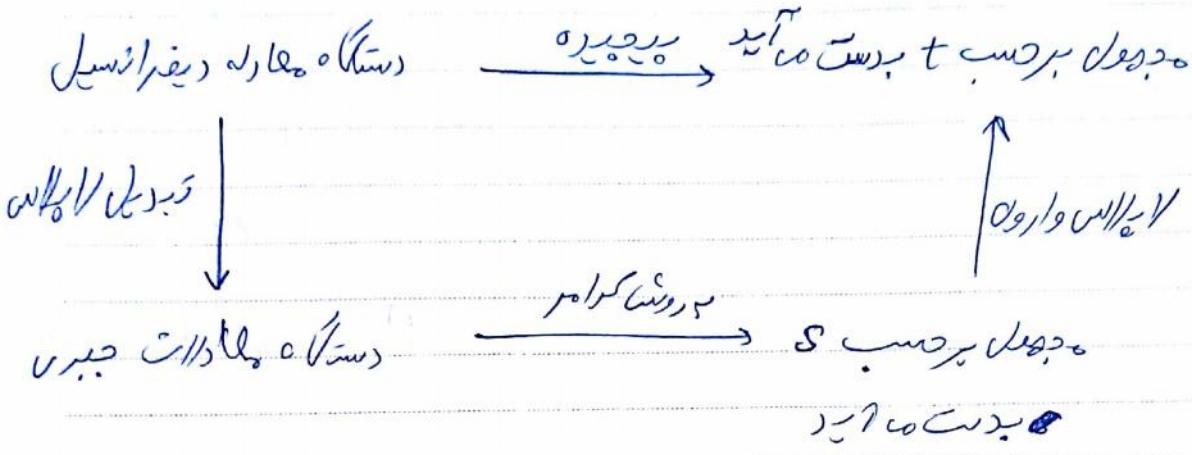 دستگاه معادله دیفرانسیل
پیچیده
مجهول برحسب t بدست می آید
تبدیل لاپلاس
لاپلاس وارون
دستگاه معادلات جبری
به روش کرامر
مجهول برحسب s
بدست می آید